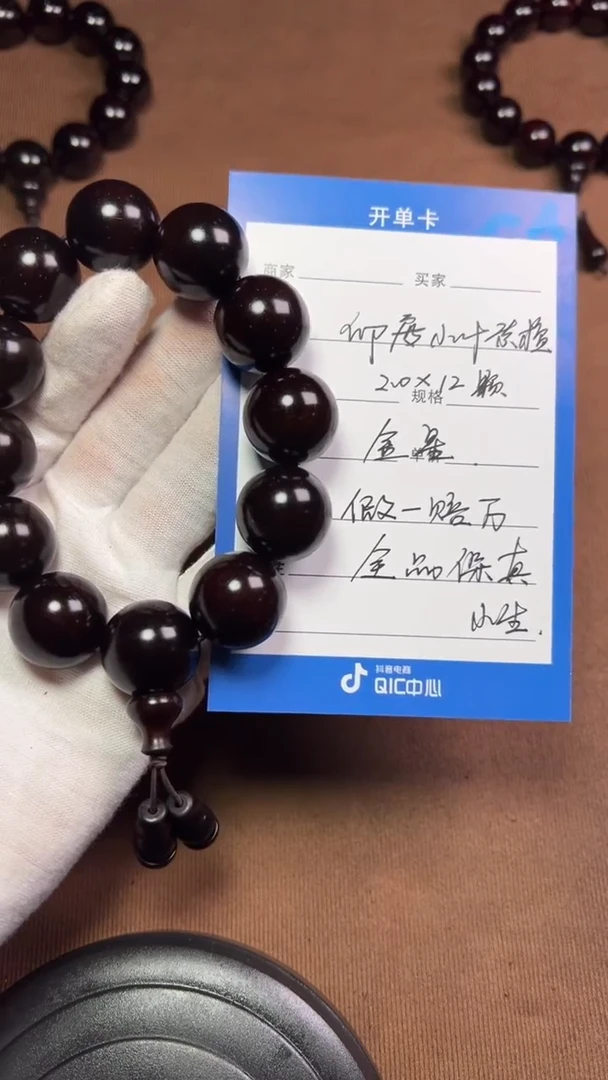 开单卡
商家 买家
印度小叶紫檀
2.0×12颗
规格
金星
假一赔万
全品保真
小生.
抖音电商
QIC中心